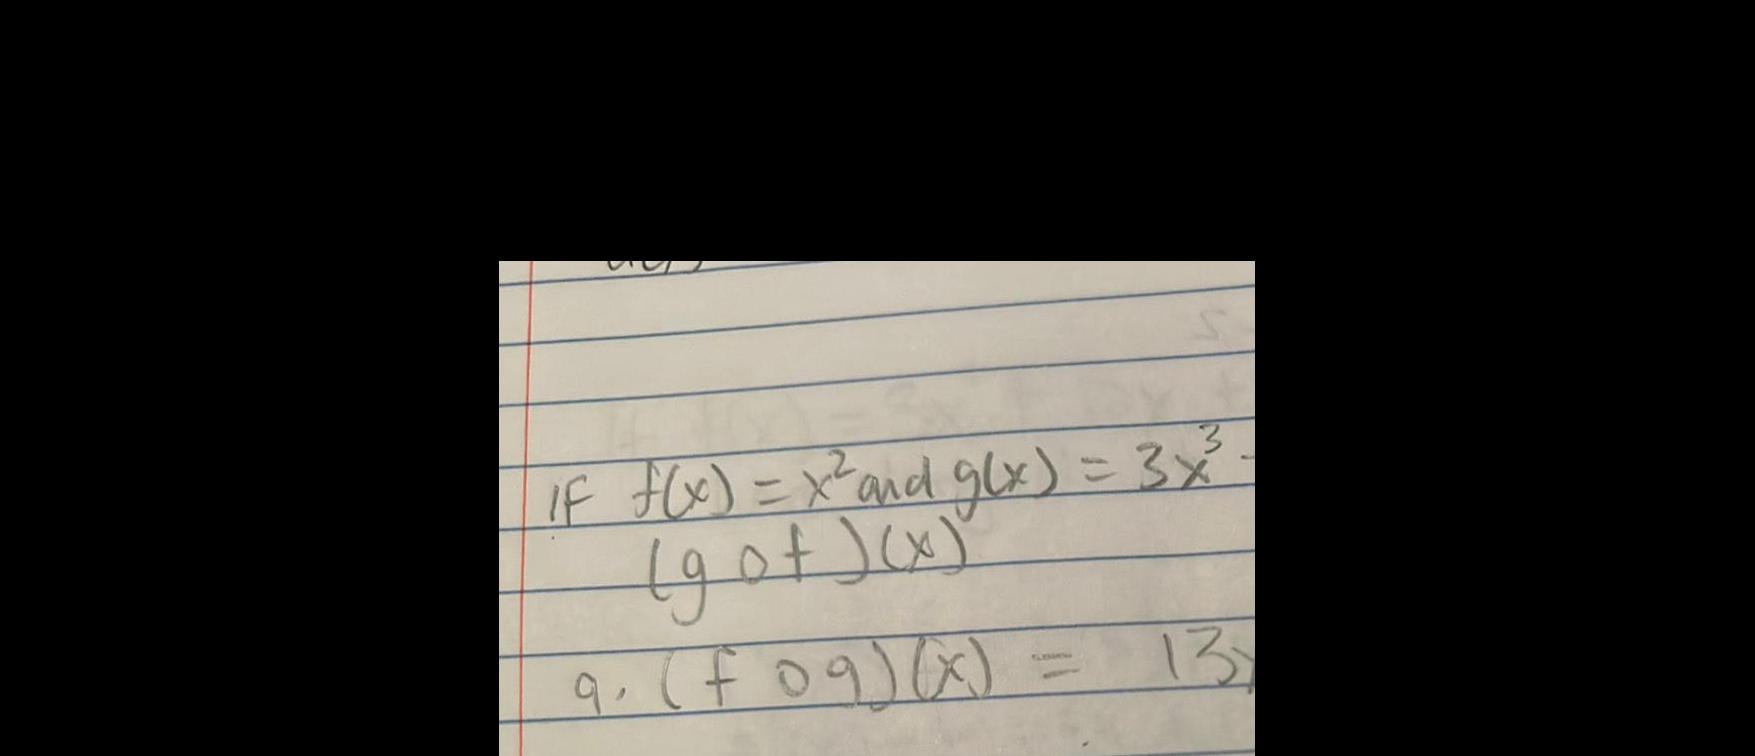 IF f(x) = x² and g(x) = 3x³ -
(g o f)(x)
a. (f o g)(x) = 13x